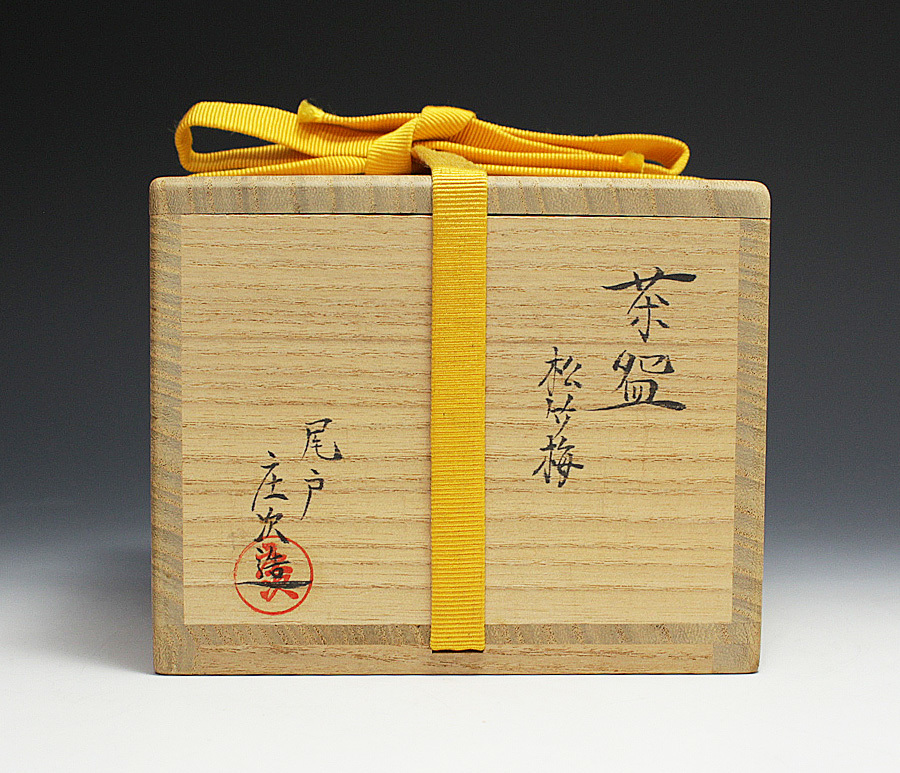 茶盌
松竹梅
尾戸
庄次造